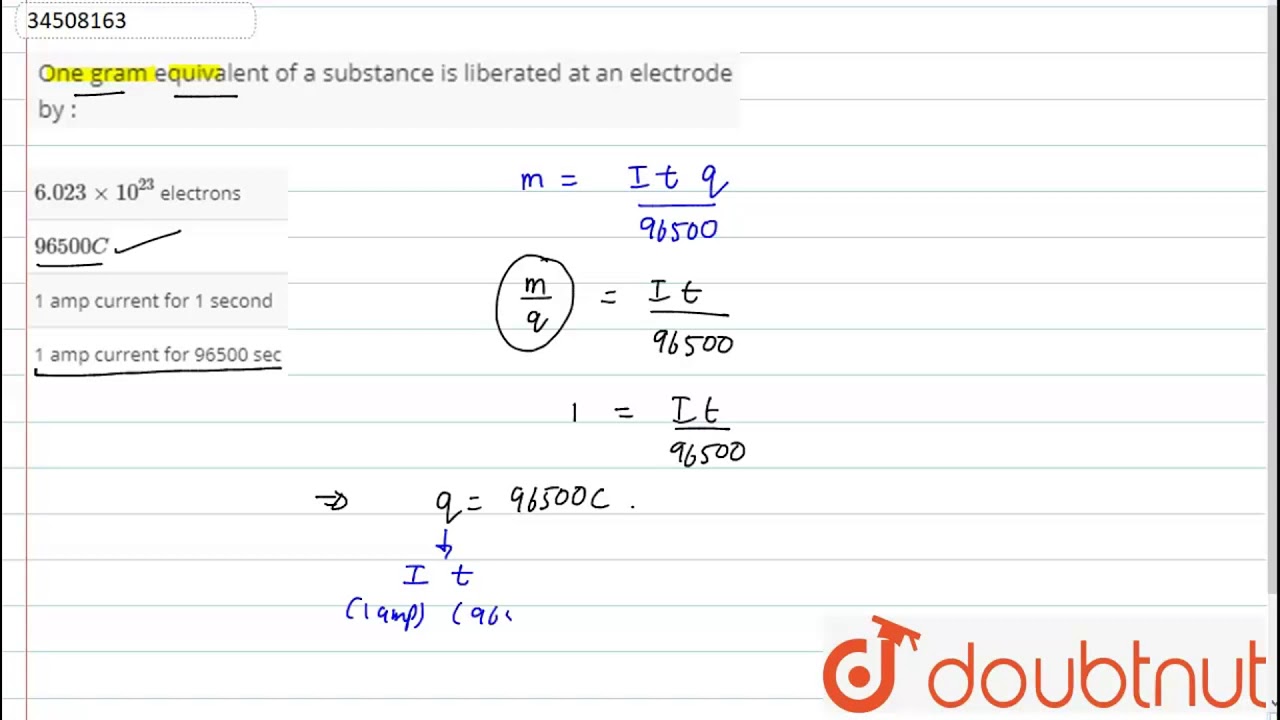 34508163
One gram equivalent of a substance is liberated at an electrode
by :
6.023 × 10²³ electrons
96500C
1 amp current for 1 second
1 amp current for 96500 sec
m = I t q
96500
m
q
= I t
96500
1 = I t
96500
⇒ q = 96500C .
↓
I t
(1 amp) (96
doubtnut